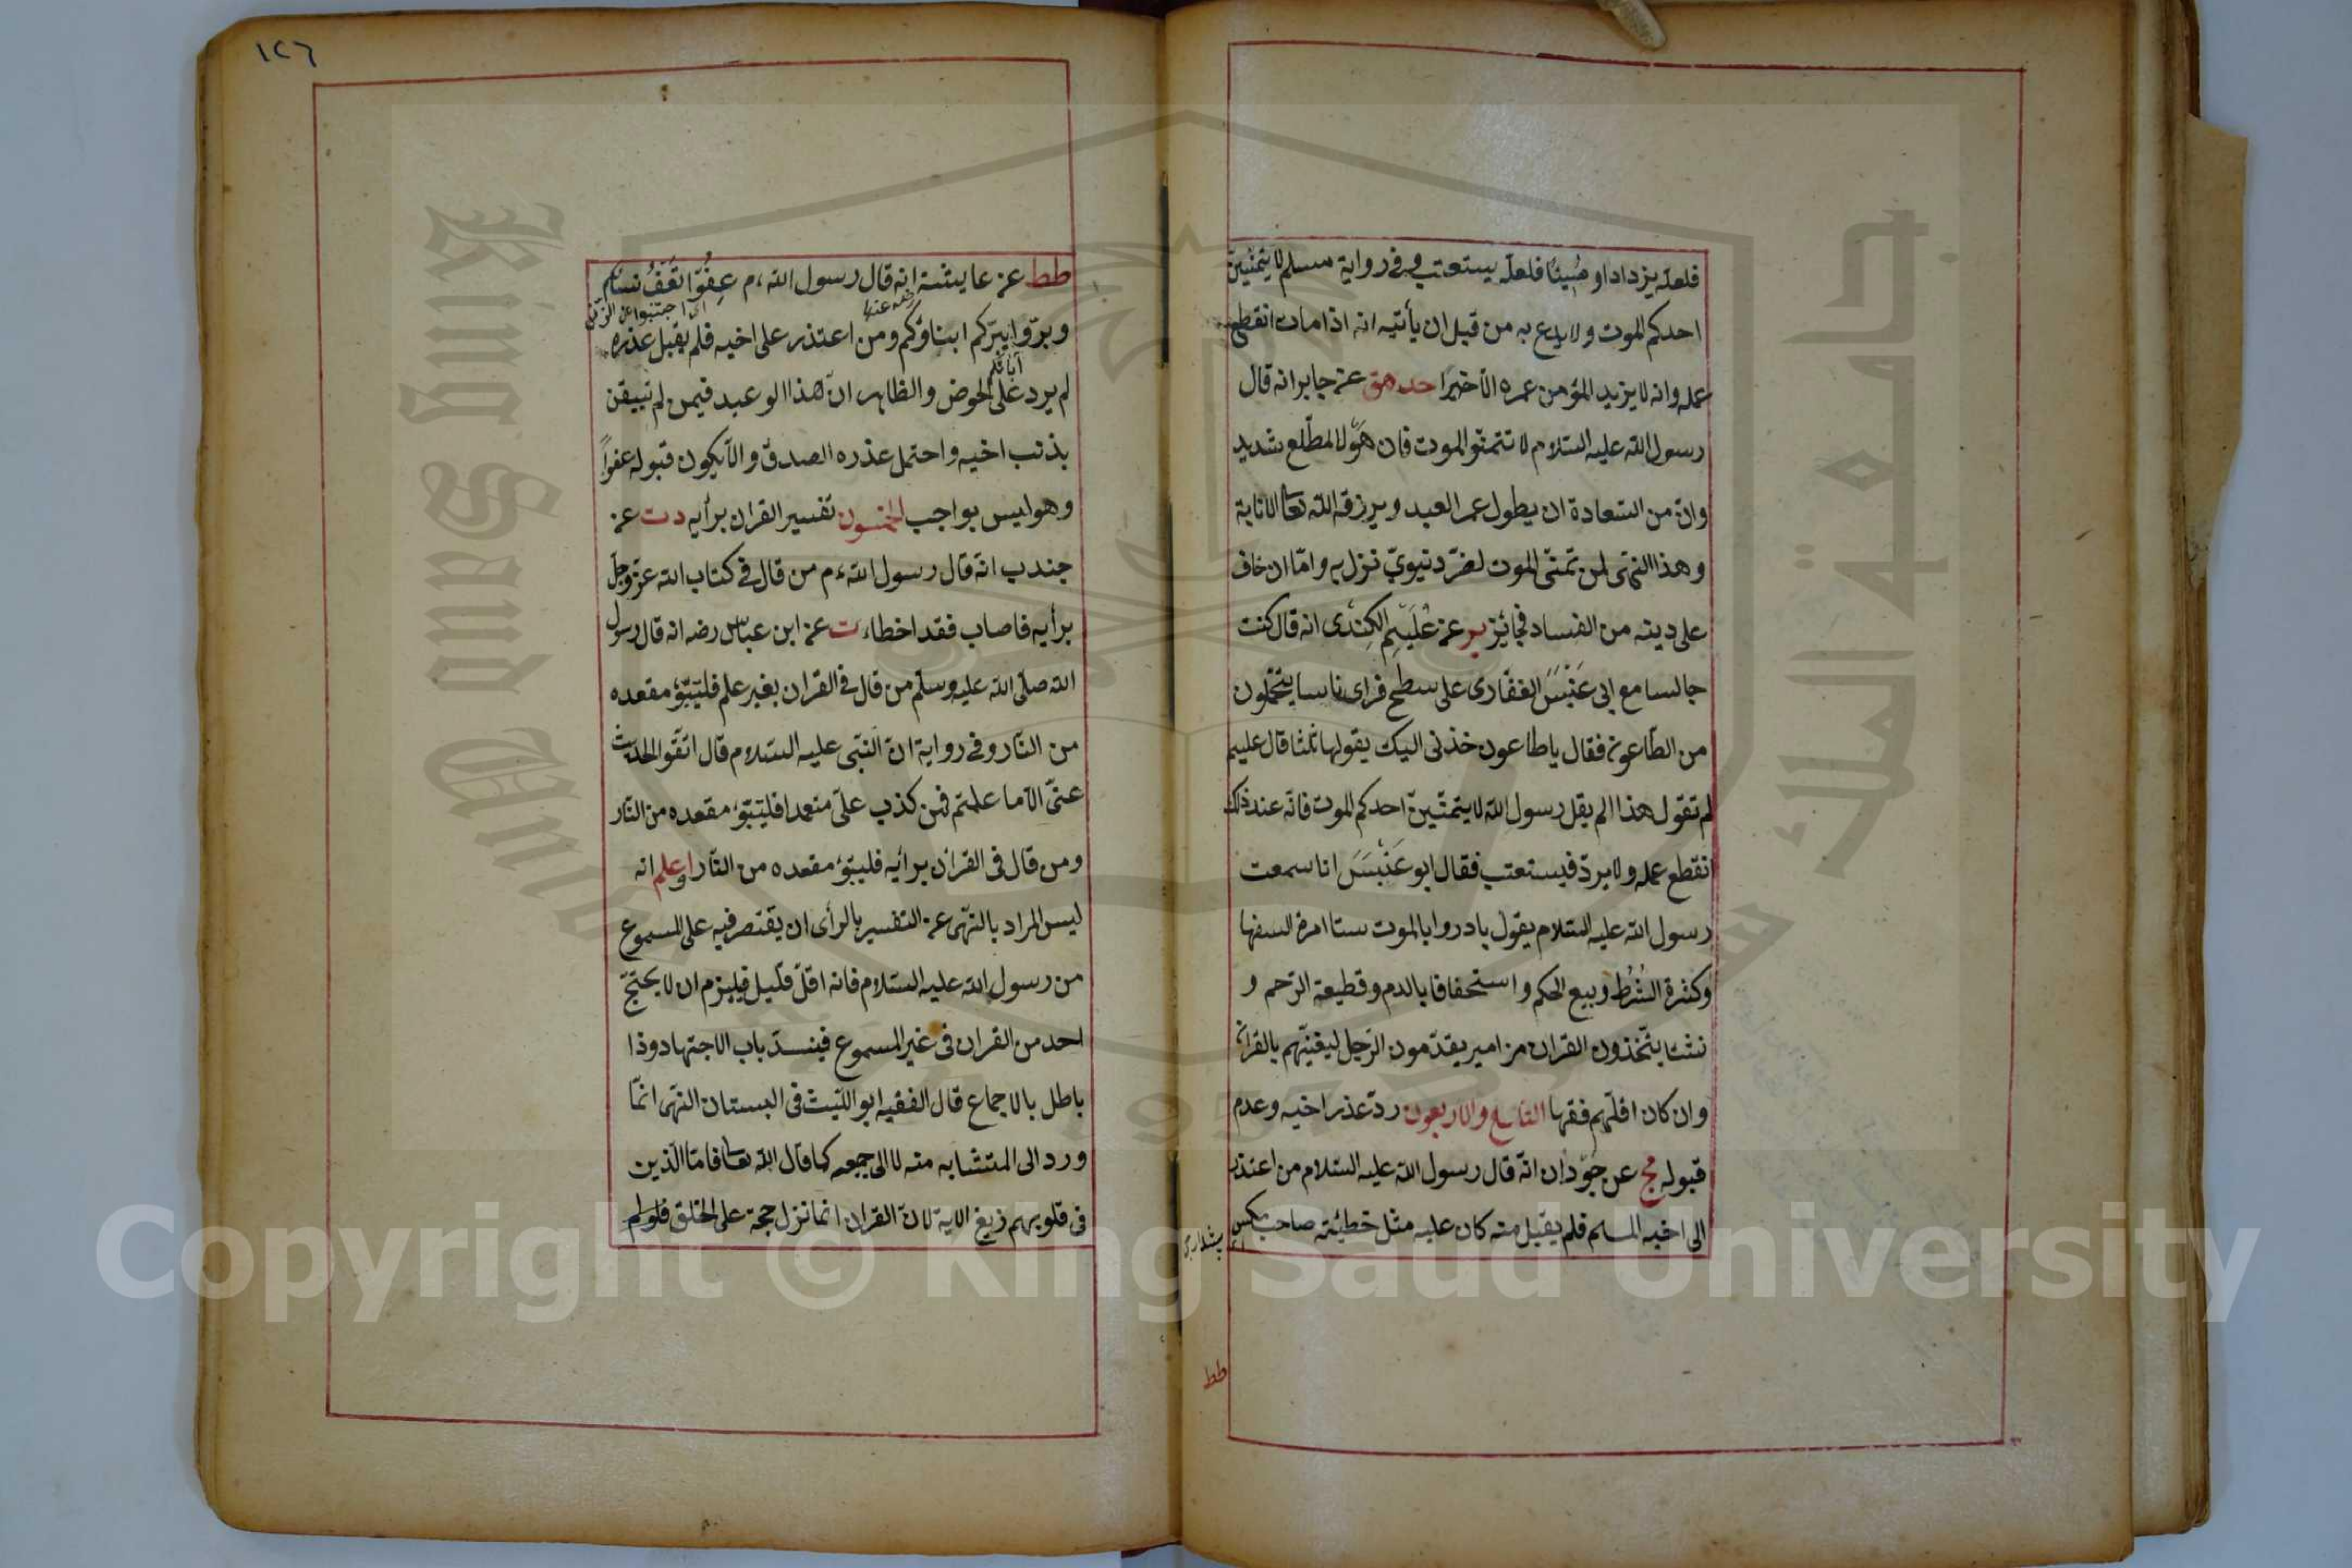 فلعله يزداد او مسيئا فلعله يستعتب وفي رواية مسلم لا يتمنين
احدكم الموت ولا يدع به من قبل ان يأتيه انه اذا مات انقطع
عمله وانه لا يزيد المؤمن عمره الا خيرا حد هق عن جابر انه قال
رسول الله عليه السلام لا تتمنوا الموت فان هول المطلع شديد
وان من السعادة ان يطول عمر العبد ويرزقه الله تعا الانابة
وهذا النهى لمن تمنى الموت لضر دنيوي نزل به واما ان خاف
على دينه من الفساد فجائز بر عن عليم الكندى انه قال كنت
جالسا مع ابى عنبس الغفارى على سطح فراى ناسا يتحملون
من الطاعون فقال يا طاعون خذنى اليك يقولها ثلثا قال عليم
لم تقول هذا الم يقل رسول الله لا يتمنين احدكم الموت فانه عند ذلك
انقطع عمله ولا يرد فيستعتب فقال ابو عنبس انا سمعت
رسول الله عليه السلام يقول بادروا بالموت ستا امرة السفها
وكثرة الشرط وبيع الحكم واستخفافا بالدم وقطيعة الرحم و
نشئا يتخذون القران مزامير يقدمون الرجل ليغنيهم بالقران
وان كان اقلهم فقها التاسع والاربعون رد عذر اخيه وعدم
قبوله مج عن جودان انه قال رسول الله عليه السلام من اعتذر
الى اخيه المسلم فلم يقبل منه كان عليه مثل خطيئة صاحب مكس
طط
١٢٦
طط عن عايشة انه قال رسول الله ءم عفوا تعف نساكم
رضه عنها
اى اجتنبوا عن الزنى
وبروا يبركم ابناؤكم ومن اعتذر على اخيه فلم يقبل عذره
آبائكم
لم يرد على الحوض والظاهر ان هذا الوعيد فيمن لم تيقن
بذنب اخيه واحتمل عذره الصدق والا يكون قبوله عفوا
وهو ليس بواجب الخمسون تفسير القران برأيه دت عن
جندب انه قال رسول الله ءم من قال في كتاب الله عز وجل
برأيه فاصاب فقد اخطاء ت عن ابن عباس رضه انه قال رسول
الله صلى الله عليه وسلم من قال في القران بغير علم فليتبوء مقعده
من النار وفي رواية ان النبى عليه السلام قال اتقوا الحديث
عنى الا ما علمتم فمن كذب على متعمدا فليتبوء مقعده من النار
ومن قال فى القران برأيه فليتبوء مقعده من النار واعلم انه
ليس المراد بالنهى عن التفسير بالرأى ان يقتصر فيه على المسموع
من رسول الله عليه السلام فانه اقل قليل فيلزم ان لا يحتج
احد من القران فى غير المسموع فينسد باب الاجتهاد وذا
باطل بالاجماع قال الفقيه ابو الليث فى البستان النهى انما
ورد الى المتشابه منه لا الى جميعه كما قال الله تعا فاما الذين
فى قلوبهم زيغ الاية لان القران انما نزل حجة على الخلق فلو لم
King Saud University
جامعة الملك سعود
1957
Copyright © King Saud University